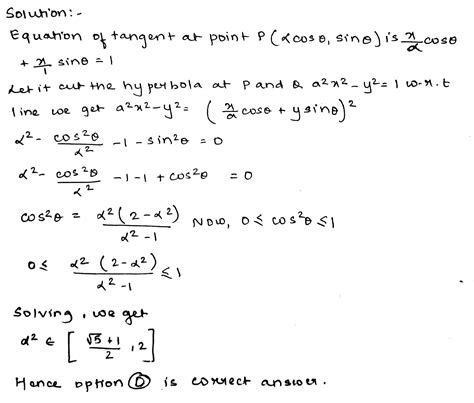 Solution:-
Equation of tangent at point P(αcosθ, sinθ) is x/α cosθ
+ x/1 sinθ = 1
Let it cut the hyperbola at P and Q a²x² - y² = 1 w.r.t
line we get a²x² - y² = (x/α cosθ + y sinθ)²
α² - cos²θ/α² - 1 - sin²θ = 0
α² - cos²θ/α² - 1 - 1 + cos²θ = 0
cos²θ = α²(2-α²)/α²-1 Now, 0 ≤ cos²θ ≤ 1
0 ≤ α²(2-α²)/α²-1 ≤ 1
Solving, we get
α² ∈ [√5+1/2, 2]
Hence option D is correct answer.